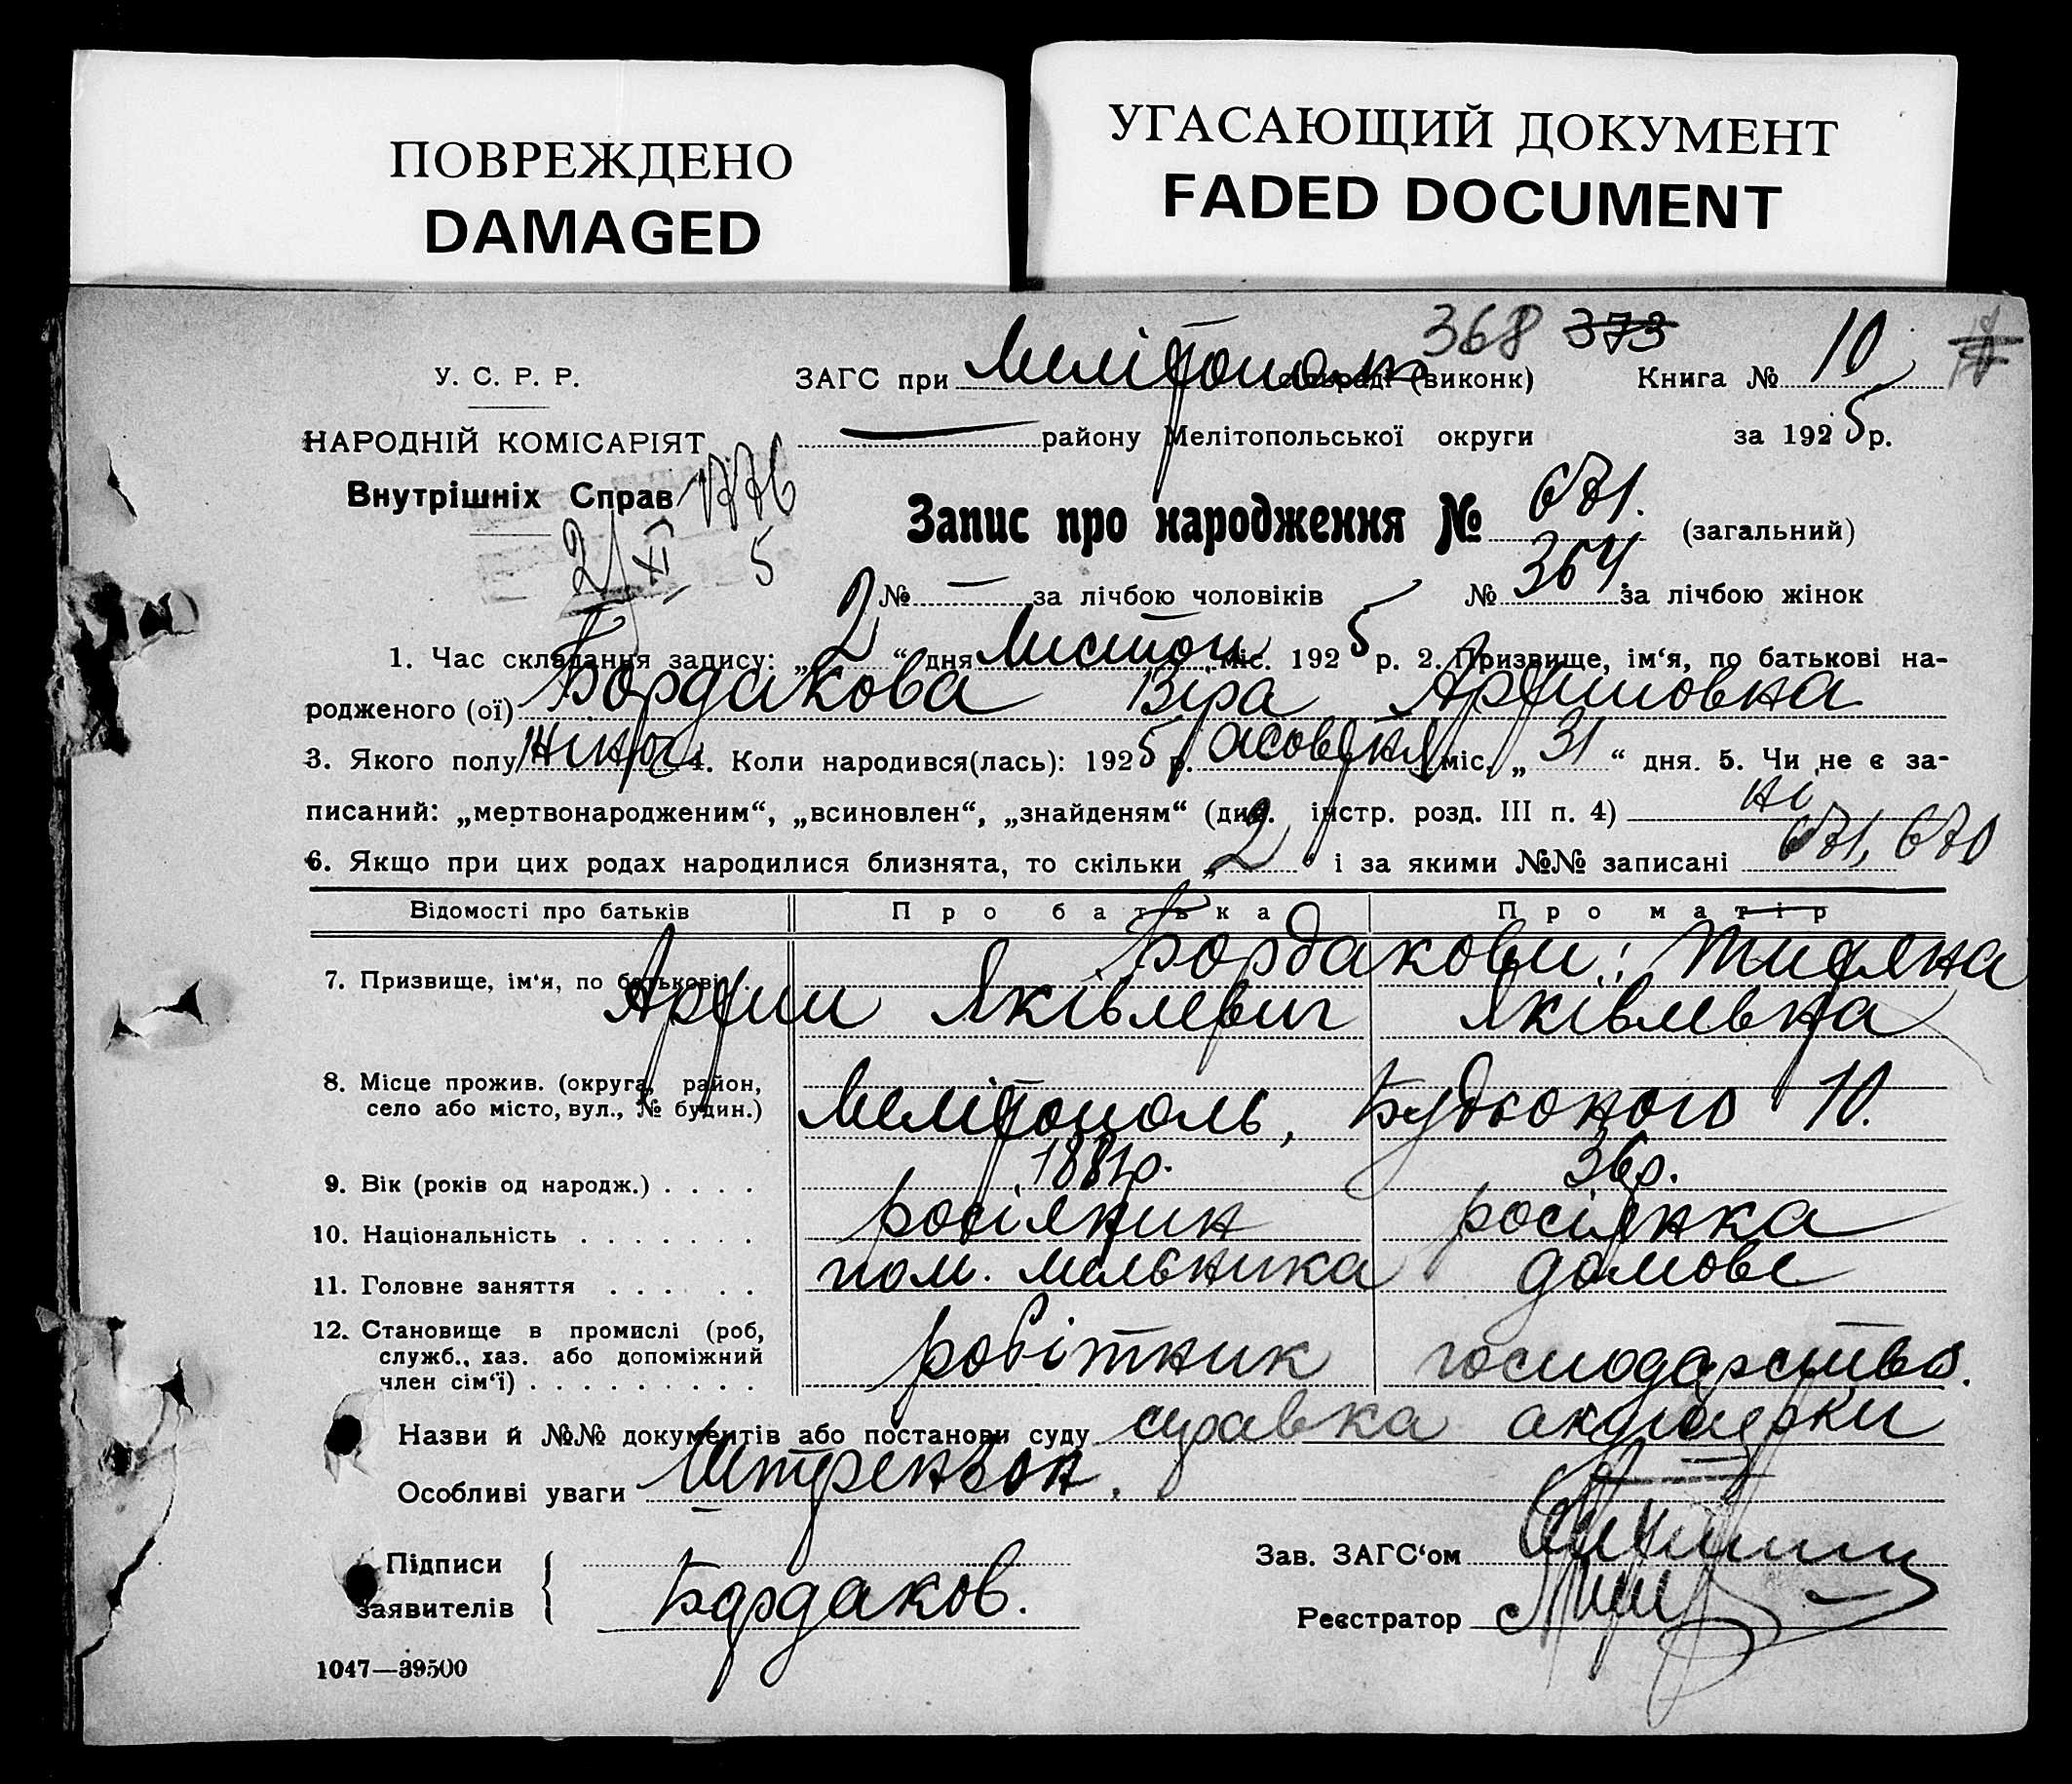 ПОВРЕЖДЕНО
DAMAGED
УГАСАЮЩИЙ ДОКУМЕНТ
FADED DOCUMENT
368 373
У. С. Р. Р.
ЗАГС при Мелітополь сільраді (виконк) Книга № 10
НАРОДНІЙ КОМІСАРІЯТ
Внутрішніх Справ
— району Мелітопольської округи за 1925 р.
1776
2/XI 5
Запис про народження № 671. (загальний)
№ — за лічбою чоловіків № 364. за лічбою жінок
1. Час складання запису: „2“ дня Листоп міс. 1925 р. 2. Призвище, ім‘я, по батькові на-
родженого (ої) Бордакова Віра Артимовна
3. Якого полу жіноч 4. Коли народився(лась): 1925 р. жовтня міс. „31“ дня. 5. Чи не є за-
писаний: „мертвонародженим“, „всиновлен“, „знайденям“ (див. інстр. розд. III п. 4) ні
6. Якщо при цих родах народилися близнята, то скільки „2“ і за якими №№ записані 671, 670
Відомості про батьків Про батька Про матір
7. Призвище, ім‘я, по батькові Бордакови: Титяна
Артим Яківлевич Яківлевна
8. Місце прожив. (округа, район,
село або місто, вул., № будин.) Мелітополь, 10.
9. Вік (років од народж.) . . . . 1881р. 36р.
10. Національність . . . . . . . росіянин росіянка
11. Головне заняття . . . . . пом. мельника домове
12. Становище в промислі (роб,
служб., хаз. або допоміжний
член сім‘ї) . . . . . . . . . робітник господарство.
Назви й №№ документів або постанови суду справка акушерки
Особливі уваги
Підписи
заявителів Бордаков.
Зав. ЗАГС‘ом
Реєстратор
1047—39500